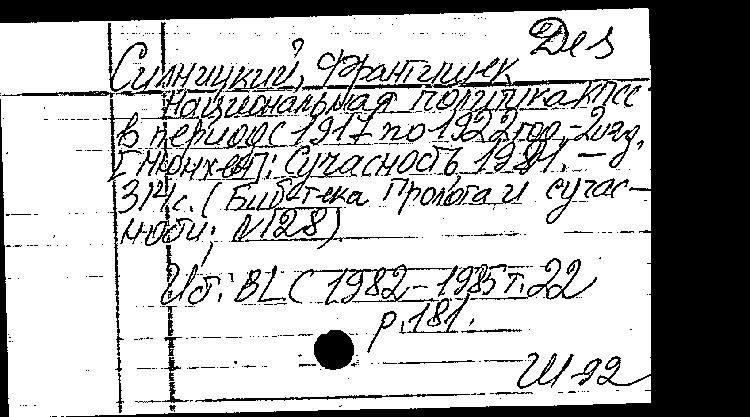 Des
Силницкий, Франтишек
Национальная политика КПСС
в период с 1917 по 1922 год.-2изд.
[Мюнхен]: Сучасность, 1981. - 
314с. (Библ-тека Пролога и сучас-
ности; N128)
Иб: BLC 1982-1985 т.22
p.181.
Ш-92